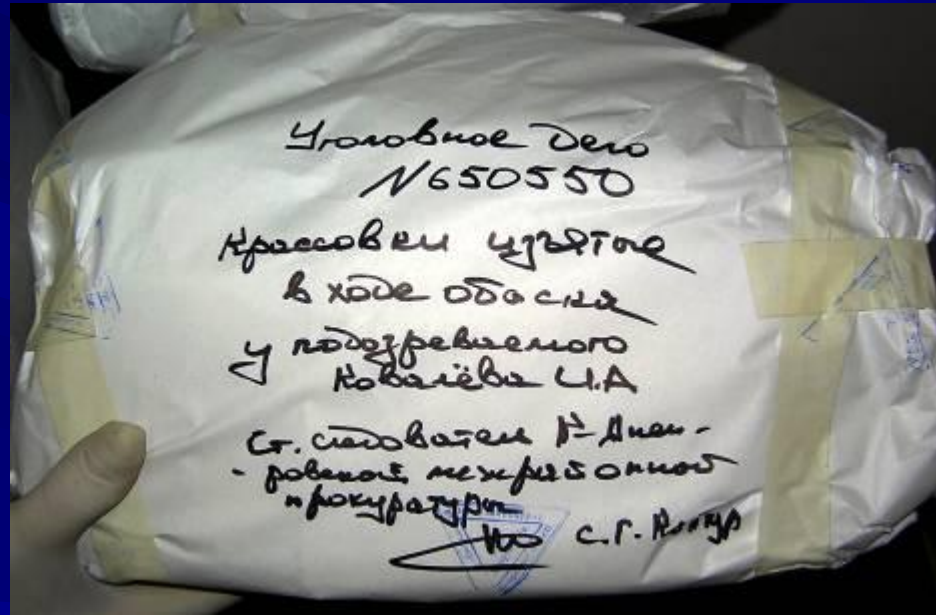 Уголовное дело
N650550
Кроссовки изъятые
в ходе обыска
у подозреваемого
Ковалёва И.А
Ст. следователь
- ровской межрайонной
прокуратуры
С.Г.